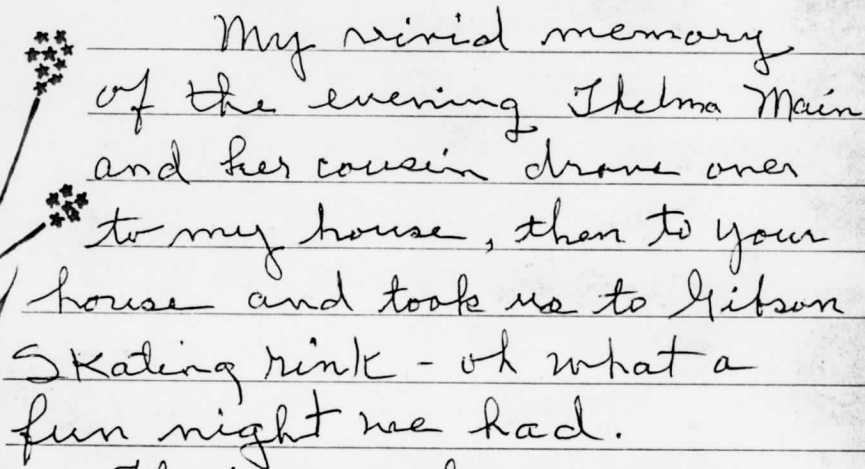 My vivid memory
of the evening Thelma Main
and her cousin drove over
to my house, then to your
house and took us to Gibson
Skating rink - oh what a
fun night we had.